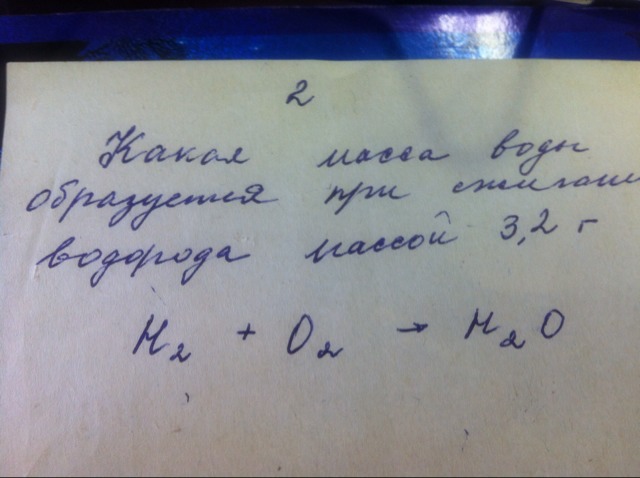 2
Какая масса воды
образуется при сжигани
водорода массой 3,2 г
H₂ + O₂ → H₂O